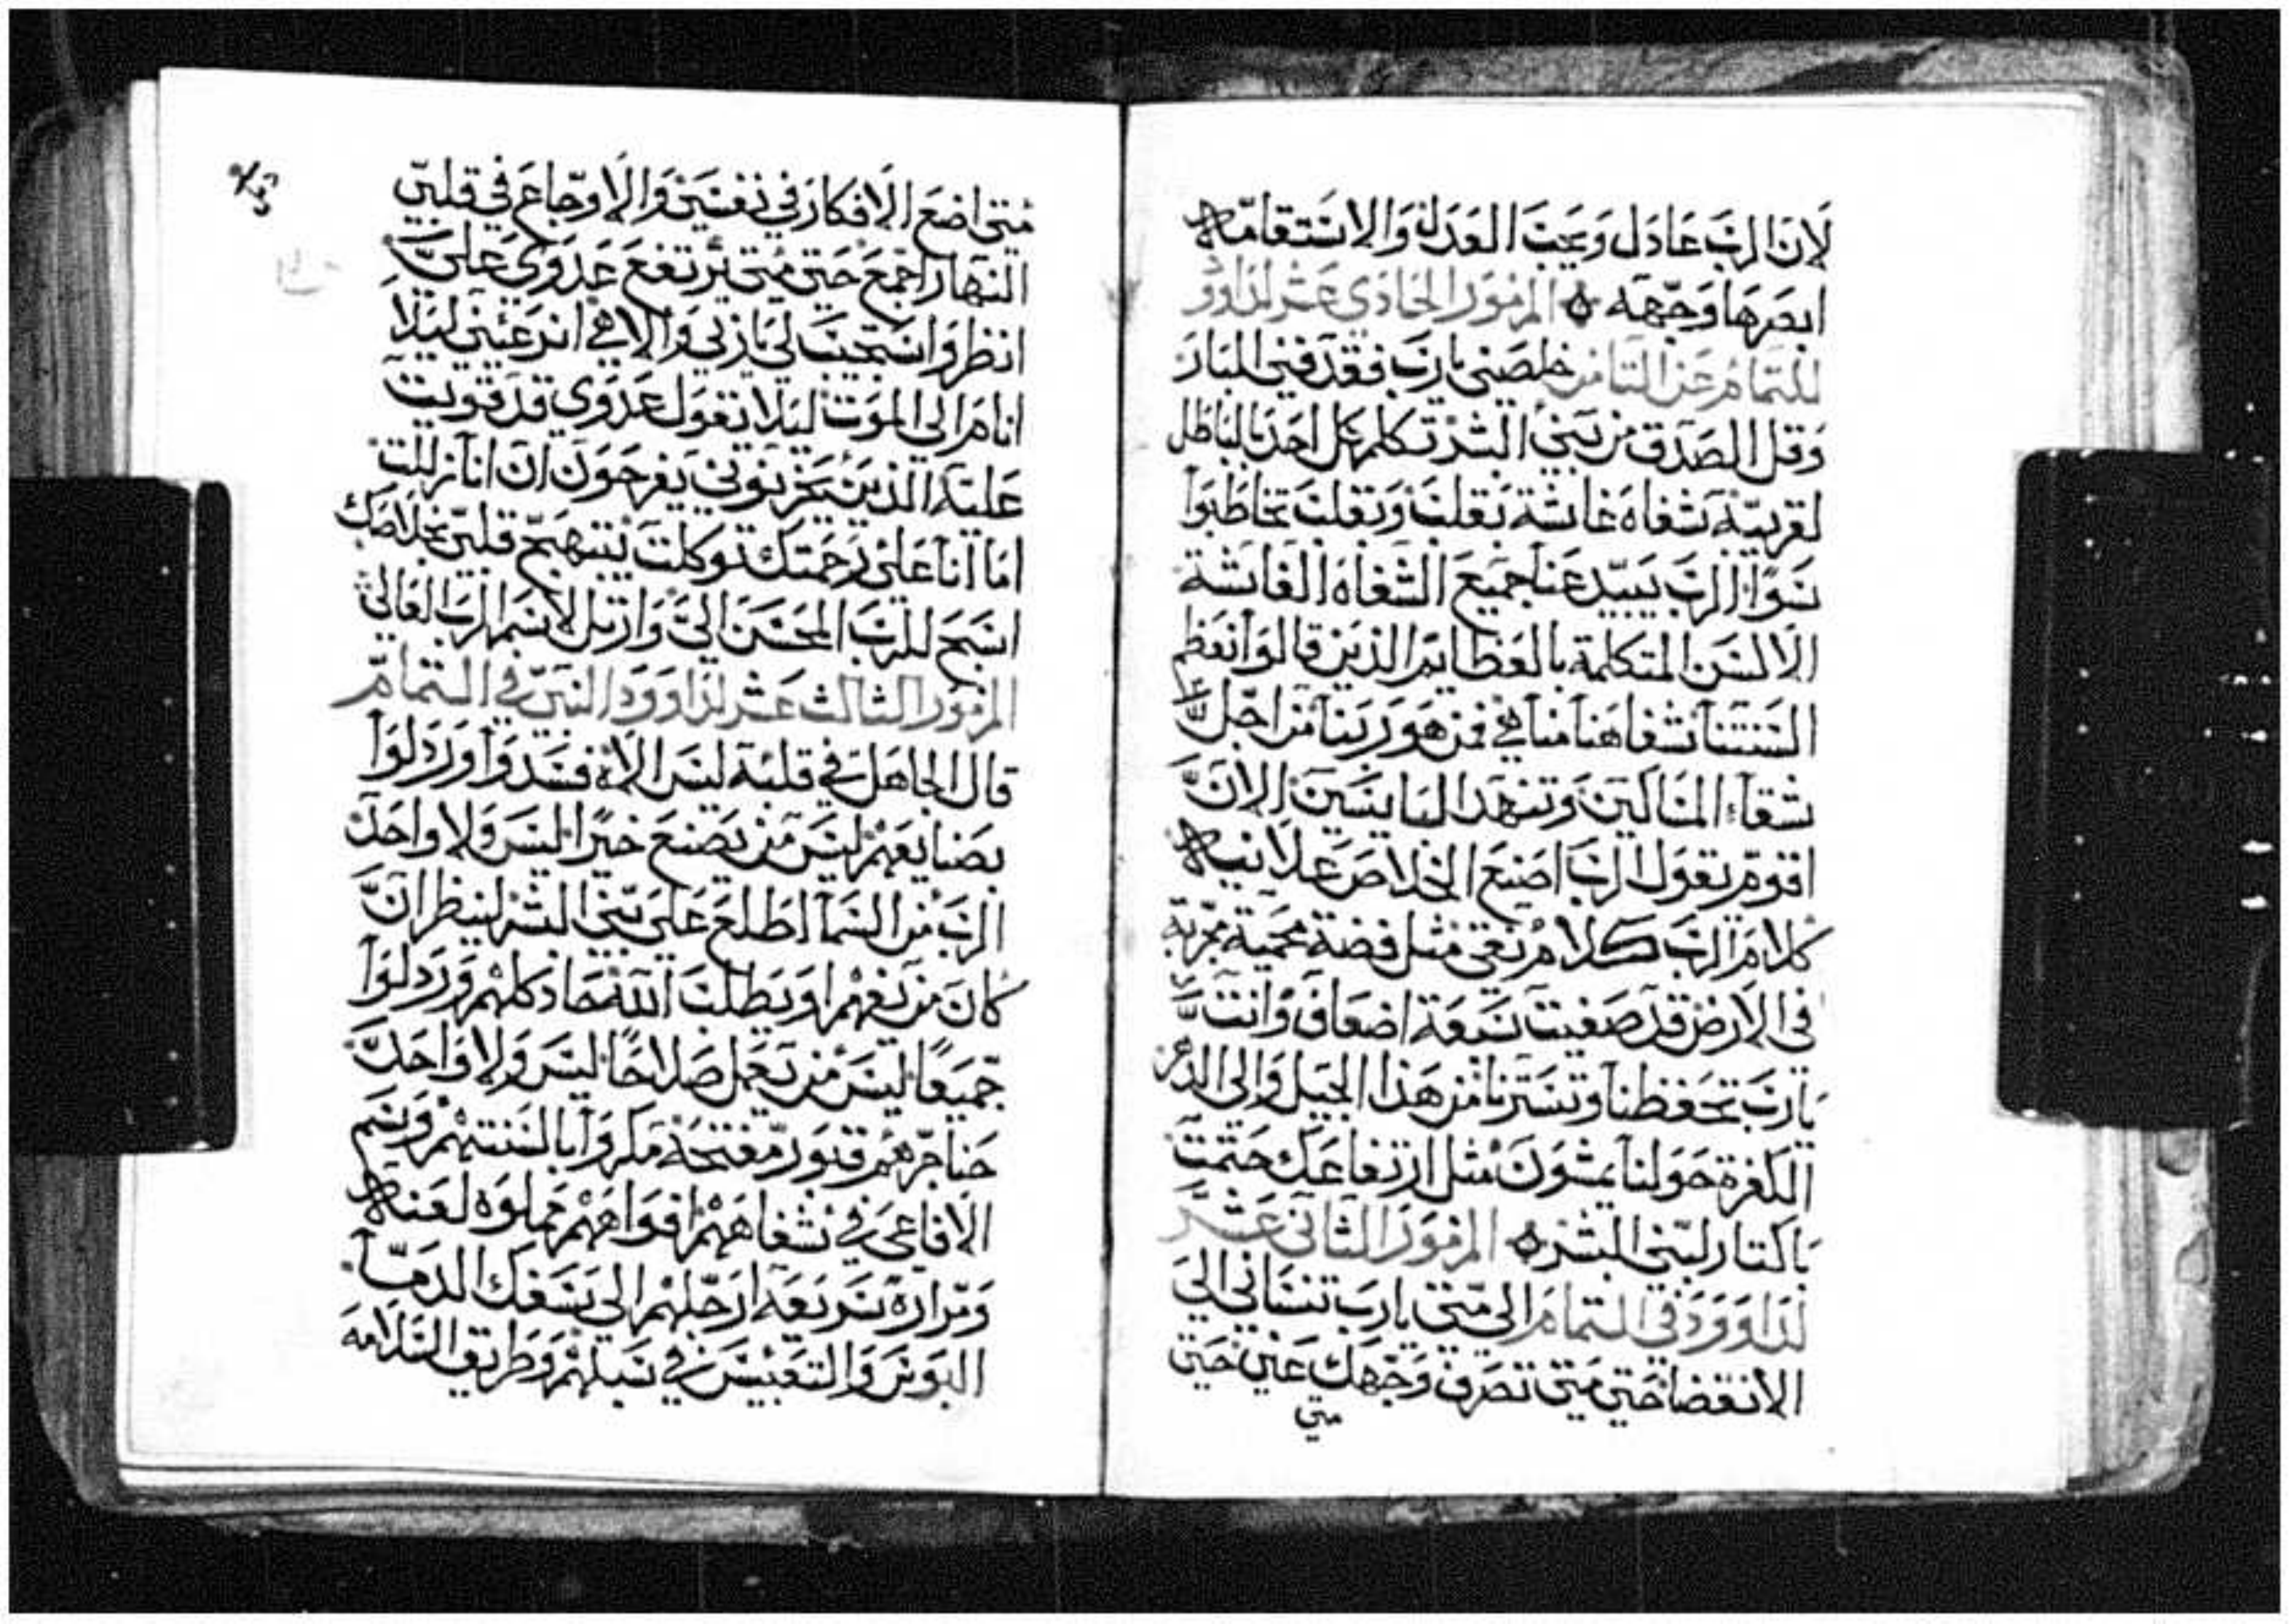 لان الرب عادل ويحب العدل والاستقامه
ابصرها وجهه المزمور الحادي عشر لداوود
للتمام عن الثامن خلصني يارب فقد فني البار
وقل الصدق من بني البشر تكلم كل احد بالباطل
لقريبه شفاه غاشة بقلب وبقلب تخاطبوا
سوا الرب يبيد عنا جميع الشفاه الغاشة
الالسن المتكلمة بالعظايم الذين قالوا نعظم
السنتنا شفاهنا منا هي فمن هو ربنا من اجل
شقاء المساكين وتنهد البايسين الان
اقوم يقول الرب اصنع الخلاص علانيه
كلام الرب كلام نقي مثل فضة محمية مجربة
في الارض قد صفيت سبعة اضعاف وانت
يارب تحفظنا وتسترنا من هذا الجيل والى الدهر
الكفرة حولنا يمشون مثل ارتفاعك حتمت
باكتار لبني البشر المزمور الثاني عشر
لداوود في التمام الي متي يارب تنساني الي
الانقضا حتي متي تصرف وجهك عني حتي
متي
متي اضع الافكار في نفسي والاوجاع في قلبي
النهار اجمع حتي متي يرتفع عدوي علي
انظر واستجب لي يا ربي والاهي انر عيني ليلا
انام الي الموت ليلا يقول عدوي قد قويت
عليه الذين يحزنوني يفرحون ان انا زللت
اما انا علي رحمتك توكلت يبتهج قلبي بخلاصك
اسبح للرب المحسن الي وارتل لاسم الرب العالي
المزمور الثالث عشر لداوود النبي في التمام
قال الجاهل في قلبه ليس الاه فسدوا ورذلوا
بصنايعهم ليس من يصنع خيرا ليس ولا واحد
الرب من السما اطلع علي بني البشر لينظر ان
كان من يفهم او يطلب الله حاد كلهم ورذلوا
جميعا ليس من يعمل صلاحا ليس ولا واحد
حناجرهم قبور مفتحة مكروا بالسنتهم وسم
الافاعي في شفاههم افواههم مملوه لعنه
ومرارة سريعه ارجلهم الى سفك الدما
البوس والتعبس في سبلهم وطريق السلامه